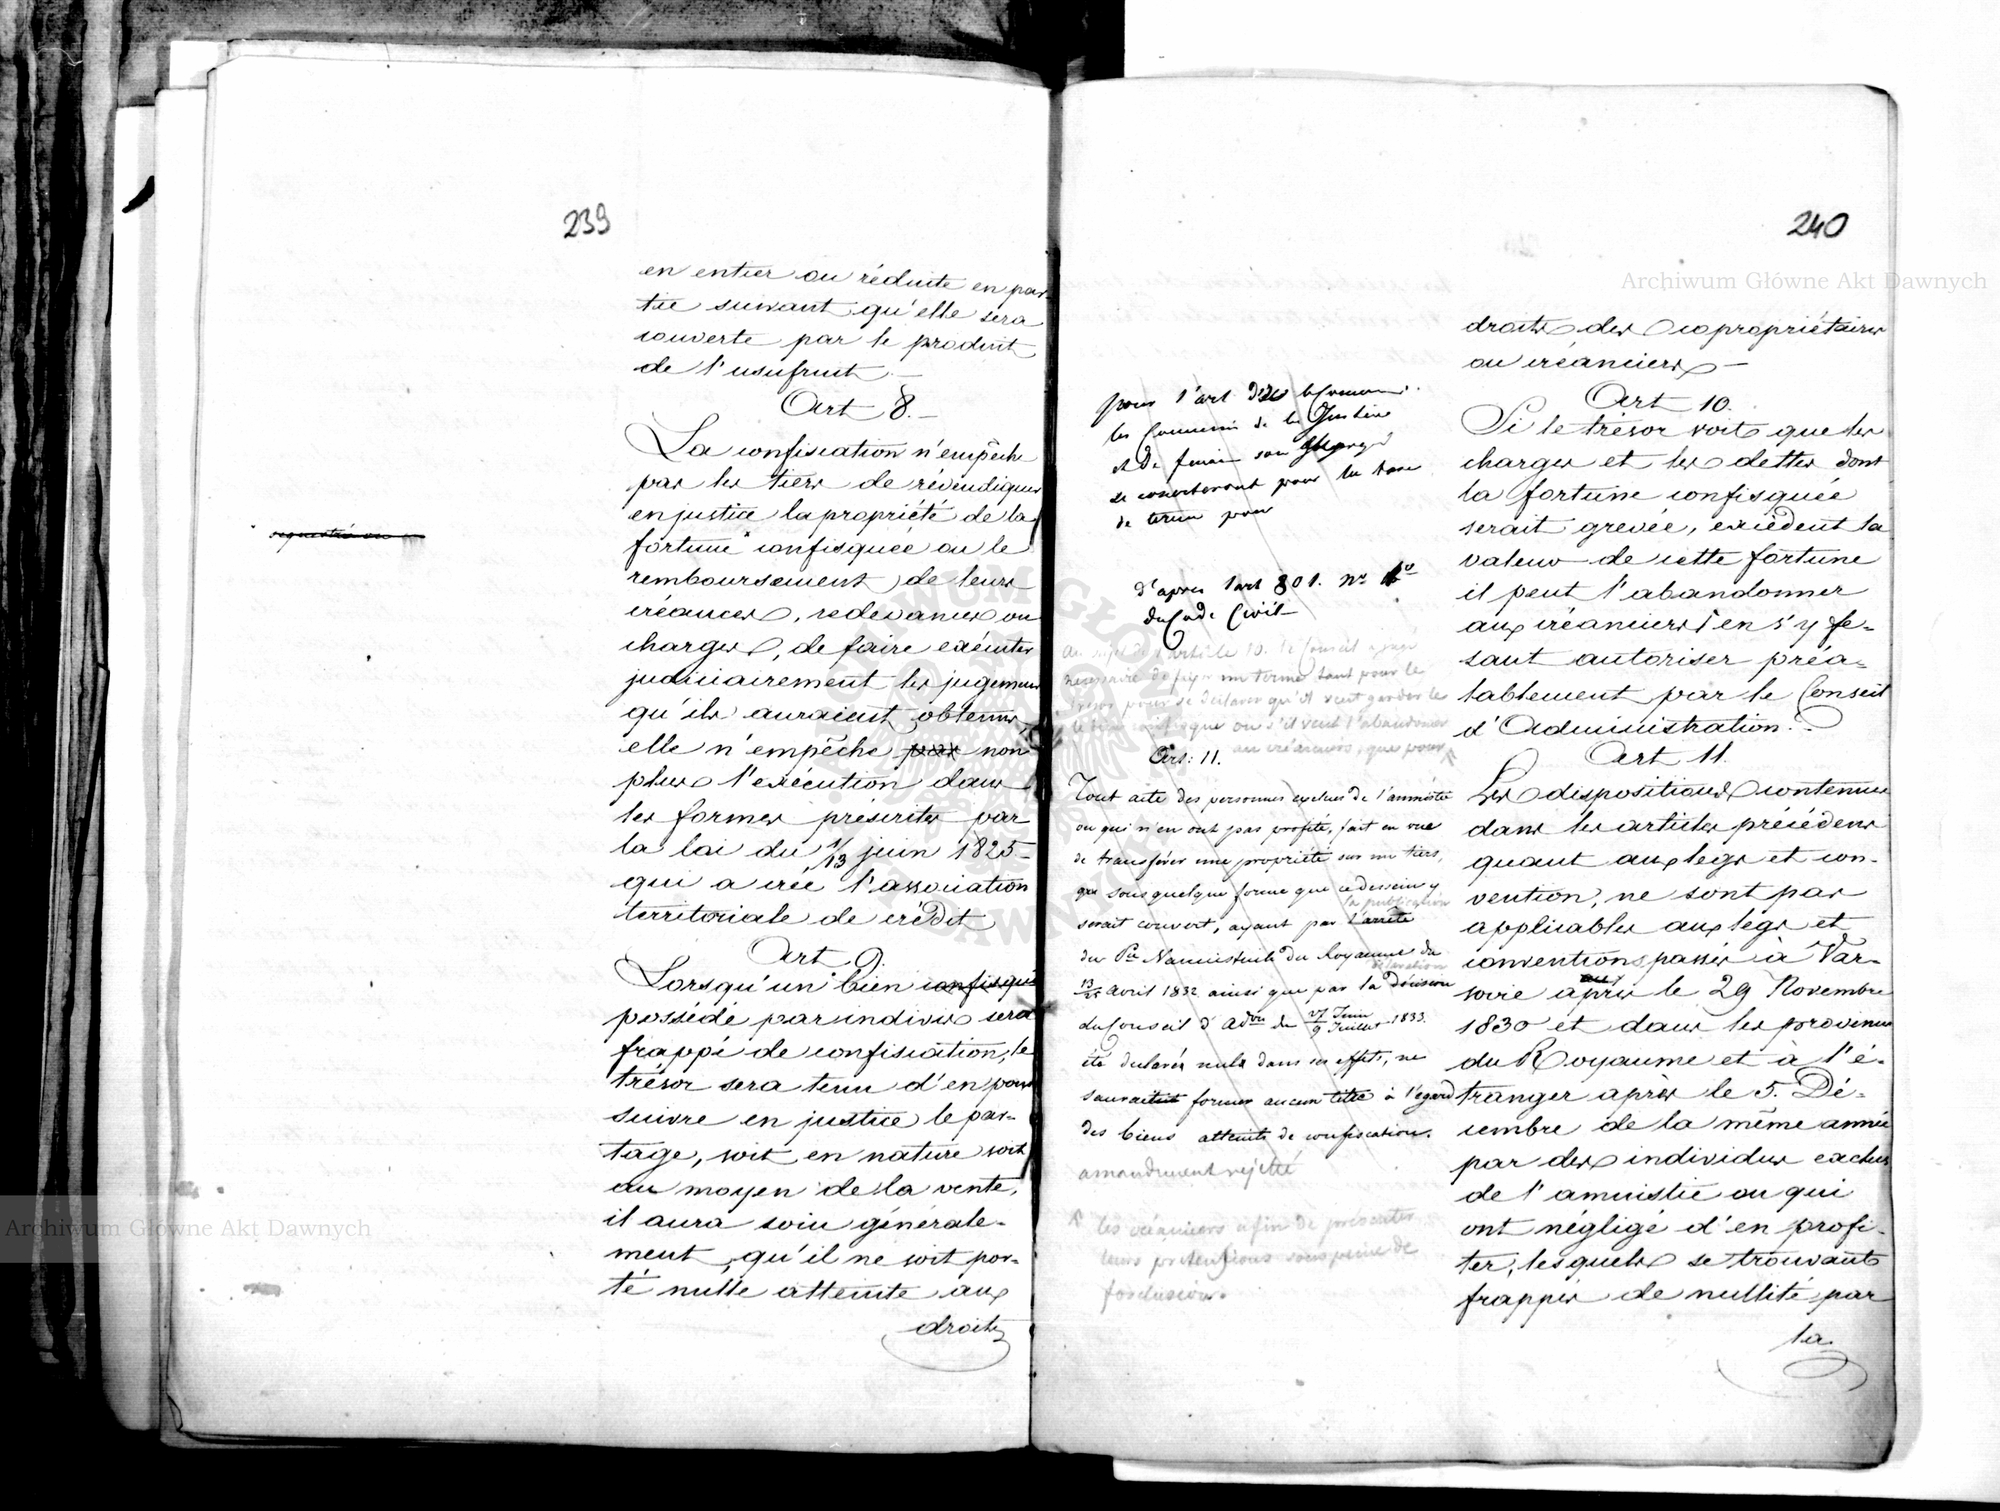 239
en entier ou réduite en par-
tie suivant qu'elle sera
couverte par le produit
de l'usufruit.—
Art 8.—
La confiscation n'empêche
pas les tiers de révendiquer
en justice la propriété de la
fortune confisquée ou le
remboursement de leurs
créances, redevances ou
charges, de faire exécuter
judiciairement les jugemens
qu'ils auraient obtenus,
elle n'empêche pas non
plus l'exécution dans
les formes préscrites par
la loi du 1/13 juin 1825—
qui a créé l'association
territoriale de crédit
Art 9.
Lorsqu'un bien confisqué
possédé par indivis sera
frappé de confiscation, le
trésor sera tenu d'en pour
suivre en justice le par-
tage, soit en nature soit
au moyen de la vente,
il aura soin générale-
ment, qu'il ne soit por-
té nulle atteinte aux
droits
240
pour l'art
de la Justice
se concerteront pour
d'apres l'art 801. Nr
du Code Civil
Au sujet de l'article 10. le Conseil a jugé
necessaire de fixer un terme tant pour le
trésor pour se déclarer qu'il veut garder le
le bien confisqué ou s'il veut l'abandonner
aux créanciers, que pour
Art: 11.
Tout acte des personnes exclues de l'amnistie
ou qui n'en ont pas profité, fait en vue
de transférer une propriété sur un tiers,
sous quelque forme que ce dessein y
la publication
serait couvert, ayant par l'arrêté
du Royaume du
13/25 Avril 1832 ainsi que par la décision
du Conseil d'Adon du 27 Juin/9 Juillet 1833.
été declarés nuls dans ses effets, ne
former aucun titre à l'égard
des biens atteints de confiscation.
amandement rejetté
les créanciers afin de présenter
leurs prétentions sous peine de
forclusion.
droits des copropriétaires
ou créanciers—
Art 10.
Si le trésor voit que les
charges et les dettes dont
la fortune confisquée
serait grevée, excèdent la
valeur de cette fortune
il peut l'abandonner
aux créanciers en s'y fe-
sant autoriser préa-
lablement par le Conseil
d'Administration.
Art 11.
Les dispositions contenues
dans les articles précédens
quant aux legs et con-
vention, ne sont pas
applicables aux legs et
conventions passés à Var-
sovie après le 29 Novembre
1830 et dans les provinces
du Royaume et à l'é-
tranger après le 5. Dé-
cembre de la même année
par des individus exclus
de l'amnistie ou qui
ont négligé d'en profi-
ter, lesquels se trouvant
frappés de nullité par
la
Archiwum Główne Akt Dawnych
Archiwum Główne Akt Dawnych